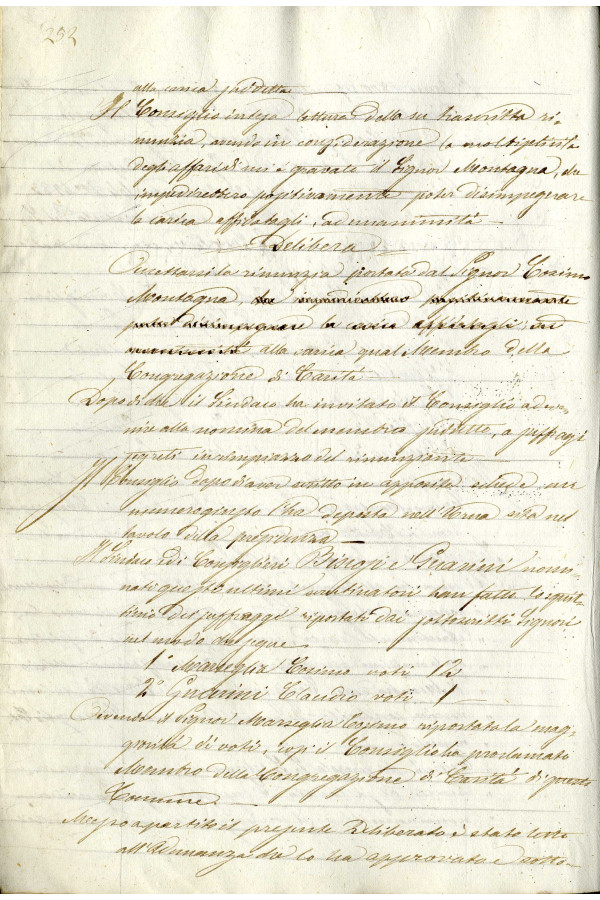 232
alla carica suddetta
Il Consiglio intesa lettura della su trascritta ri-
nunzia, avendo in considerazione la moltiplicità
degli affari di cui è gravato il Signor Montagna, che
impedirebbero positivamente poter disimpegnare
la carica affidatagli, ad unanimità
Delibera
Accettarsi la rinunzia portata dal Signor Cosimo
Montagna, che impedirebbero positivamente
poter disimpegnare la carica affidatagli, ad
unanimità alla carica qual Membro della
Congregazione di Carità
Dopo di che il Sindaco ha invitato il Consiglio a ve-
nire alla nomina del membro suddetto, a suffragi
segreti in rimpiazzo del rinunziante
Il Consiglio dopo d'aver scritto in apposita schede un
nome ognuno l'ha deposta nell'Urna sita nel
tavolo della presidenza
Il Sindaco ed i Consiglieri Bisogi e Guarini nomi-
nati questi ultimi scrutinatori han fatto lo squit-
tinio dei suffraggi riportati dai sottoscritti Signori
nel modo che segue
1° Marseglia Cosimo voti 12
2° Guarini Claudio voti 1
Avendo il Signor Marseglia Cosimo riportato la mag-
gioritá di voti, così il Consiglio ha proclamato
Membro della Congregazione di Carità di questo
Comune
Messo a partito il presente Deliberato è stato letto
all'Adunanza che lo ha approvato e sotto-